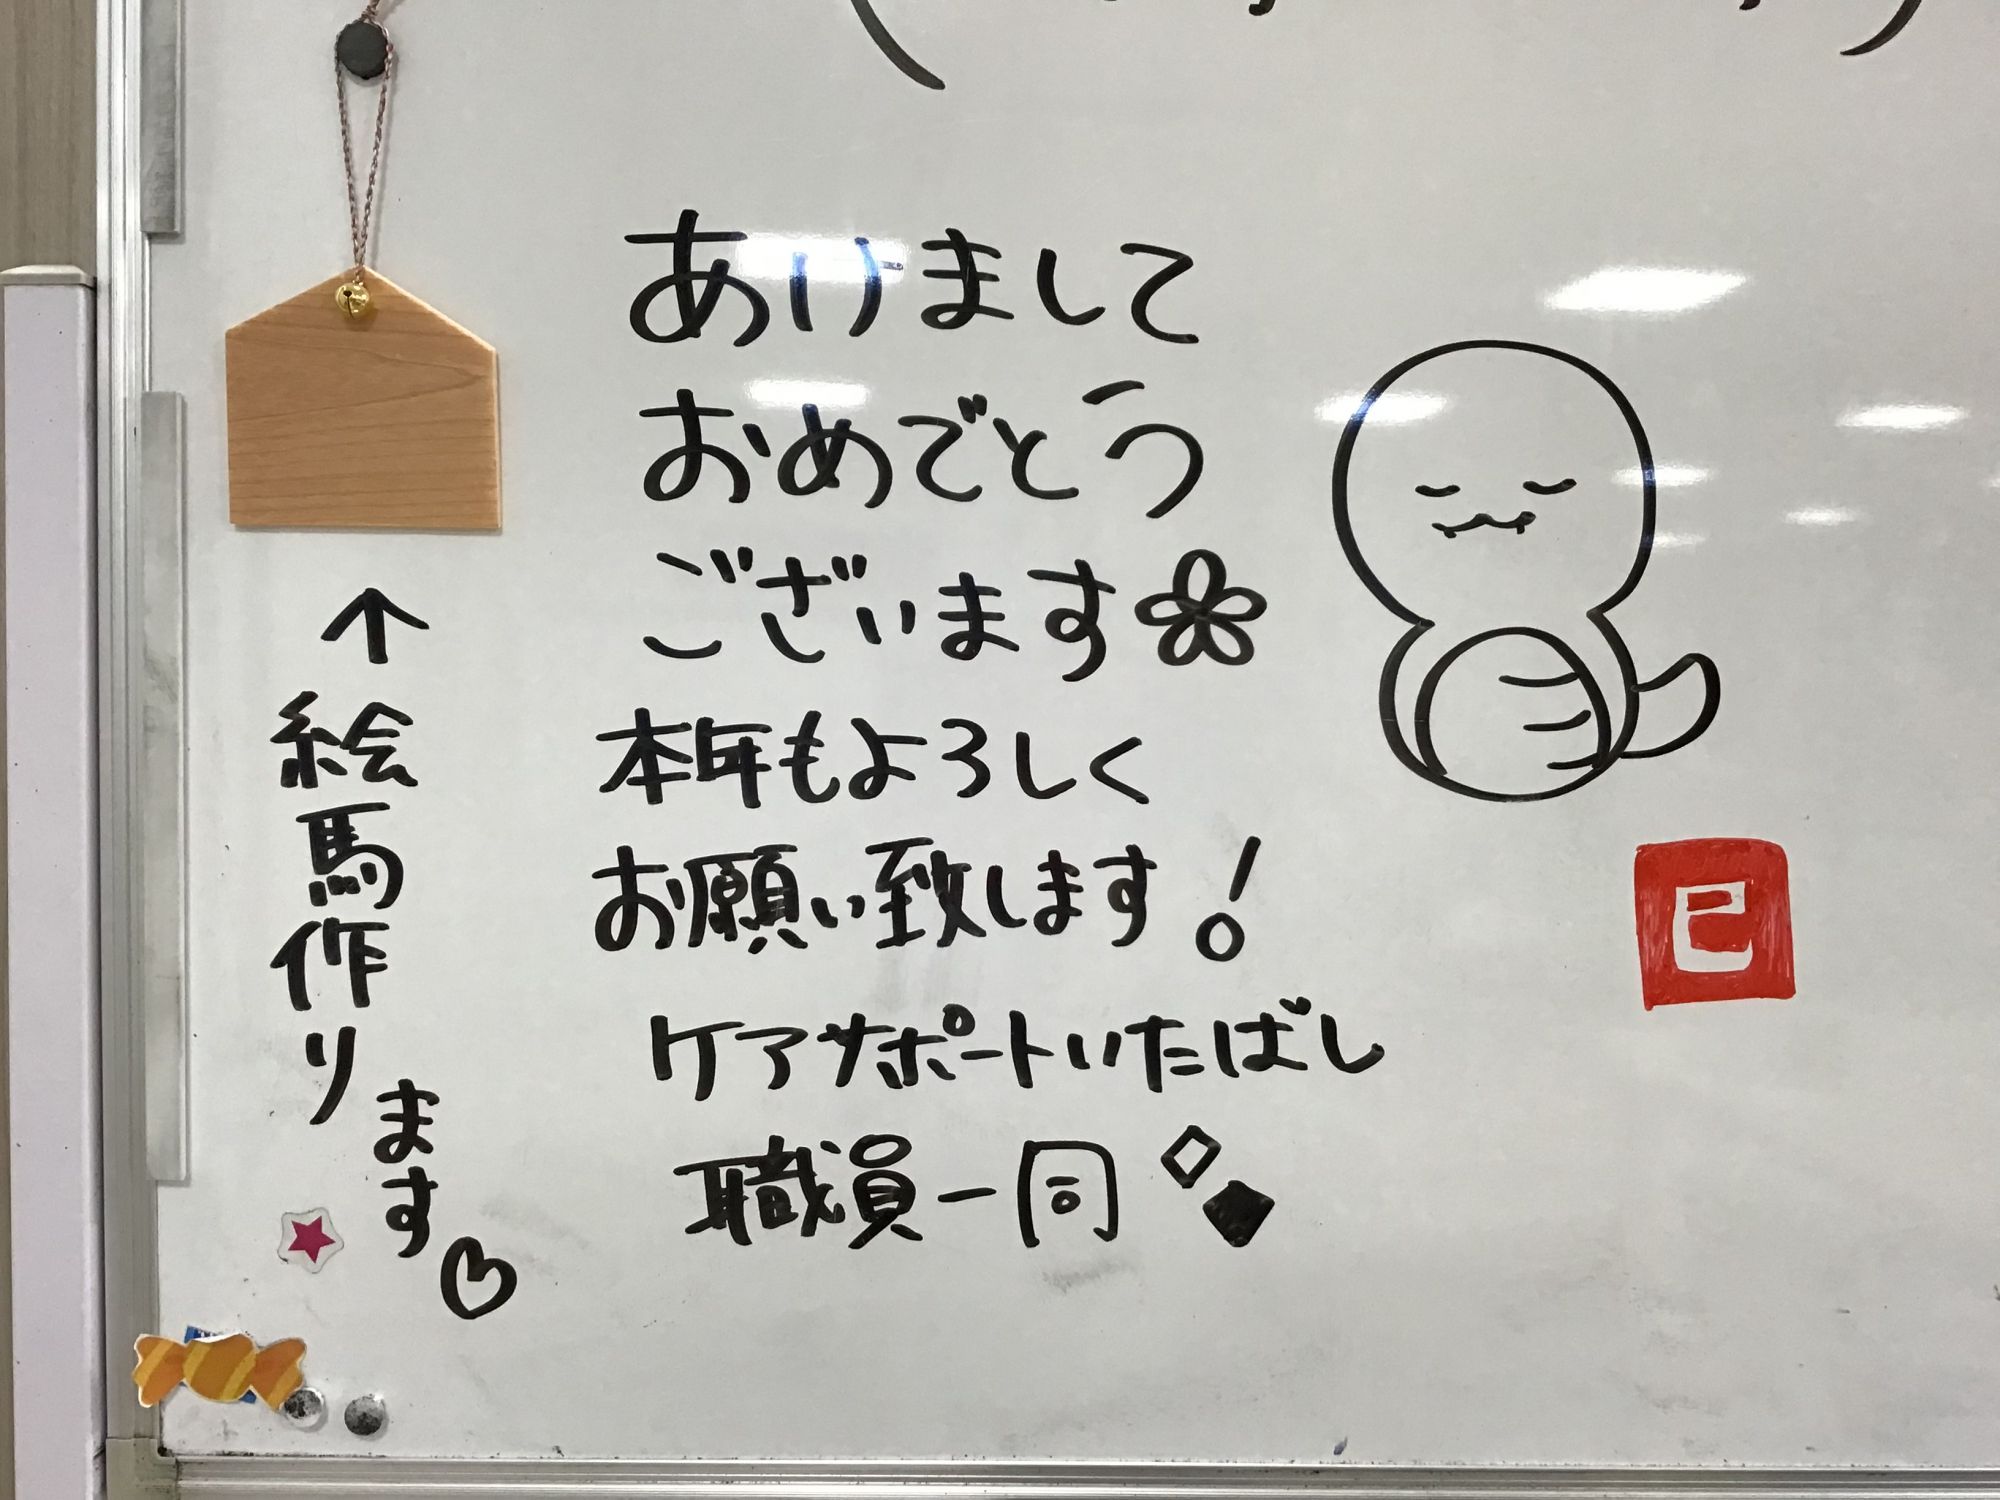 あけまして
おめでとう
ございます
本年もよろしく
お願い致します!
ケアサポートいたばし
職員一同
↑絵馬作ります♡
巳